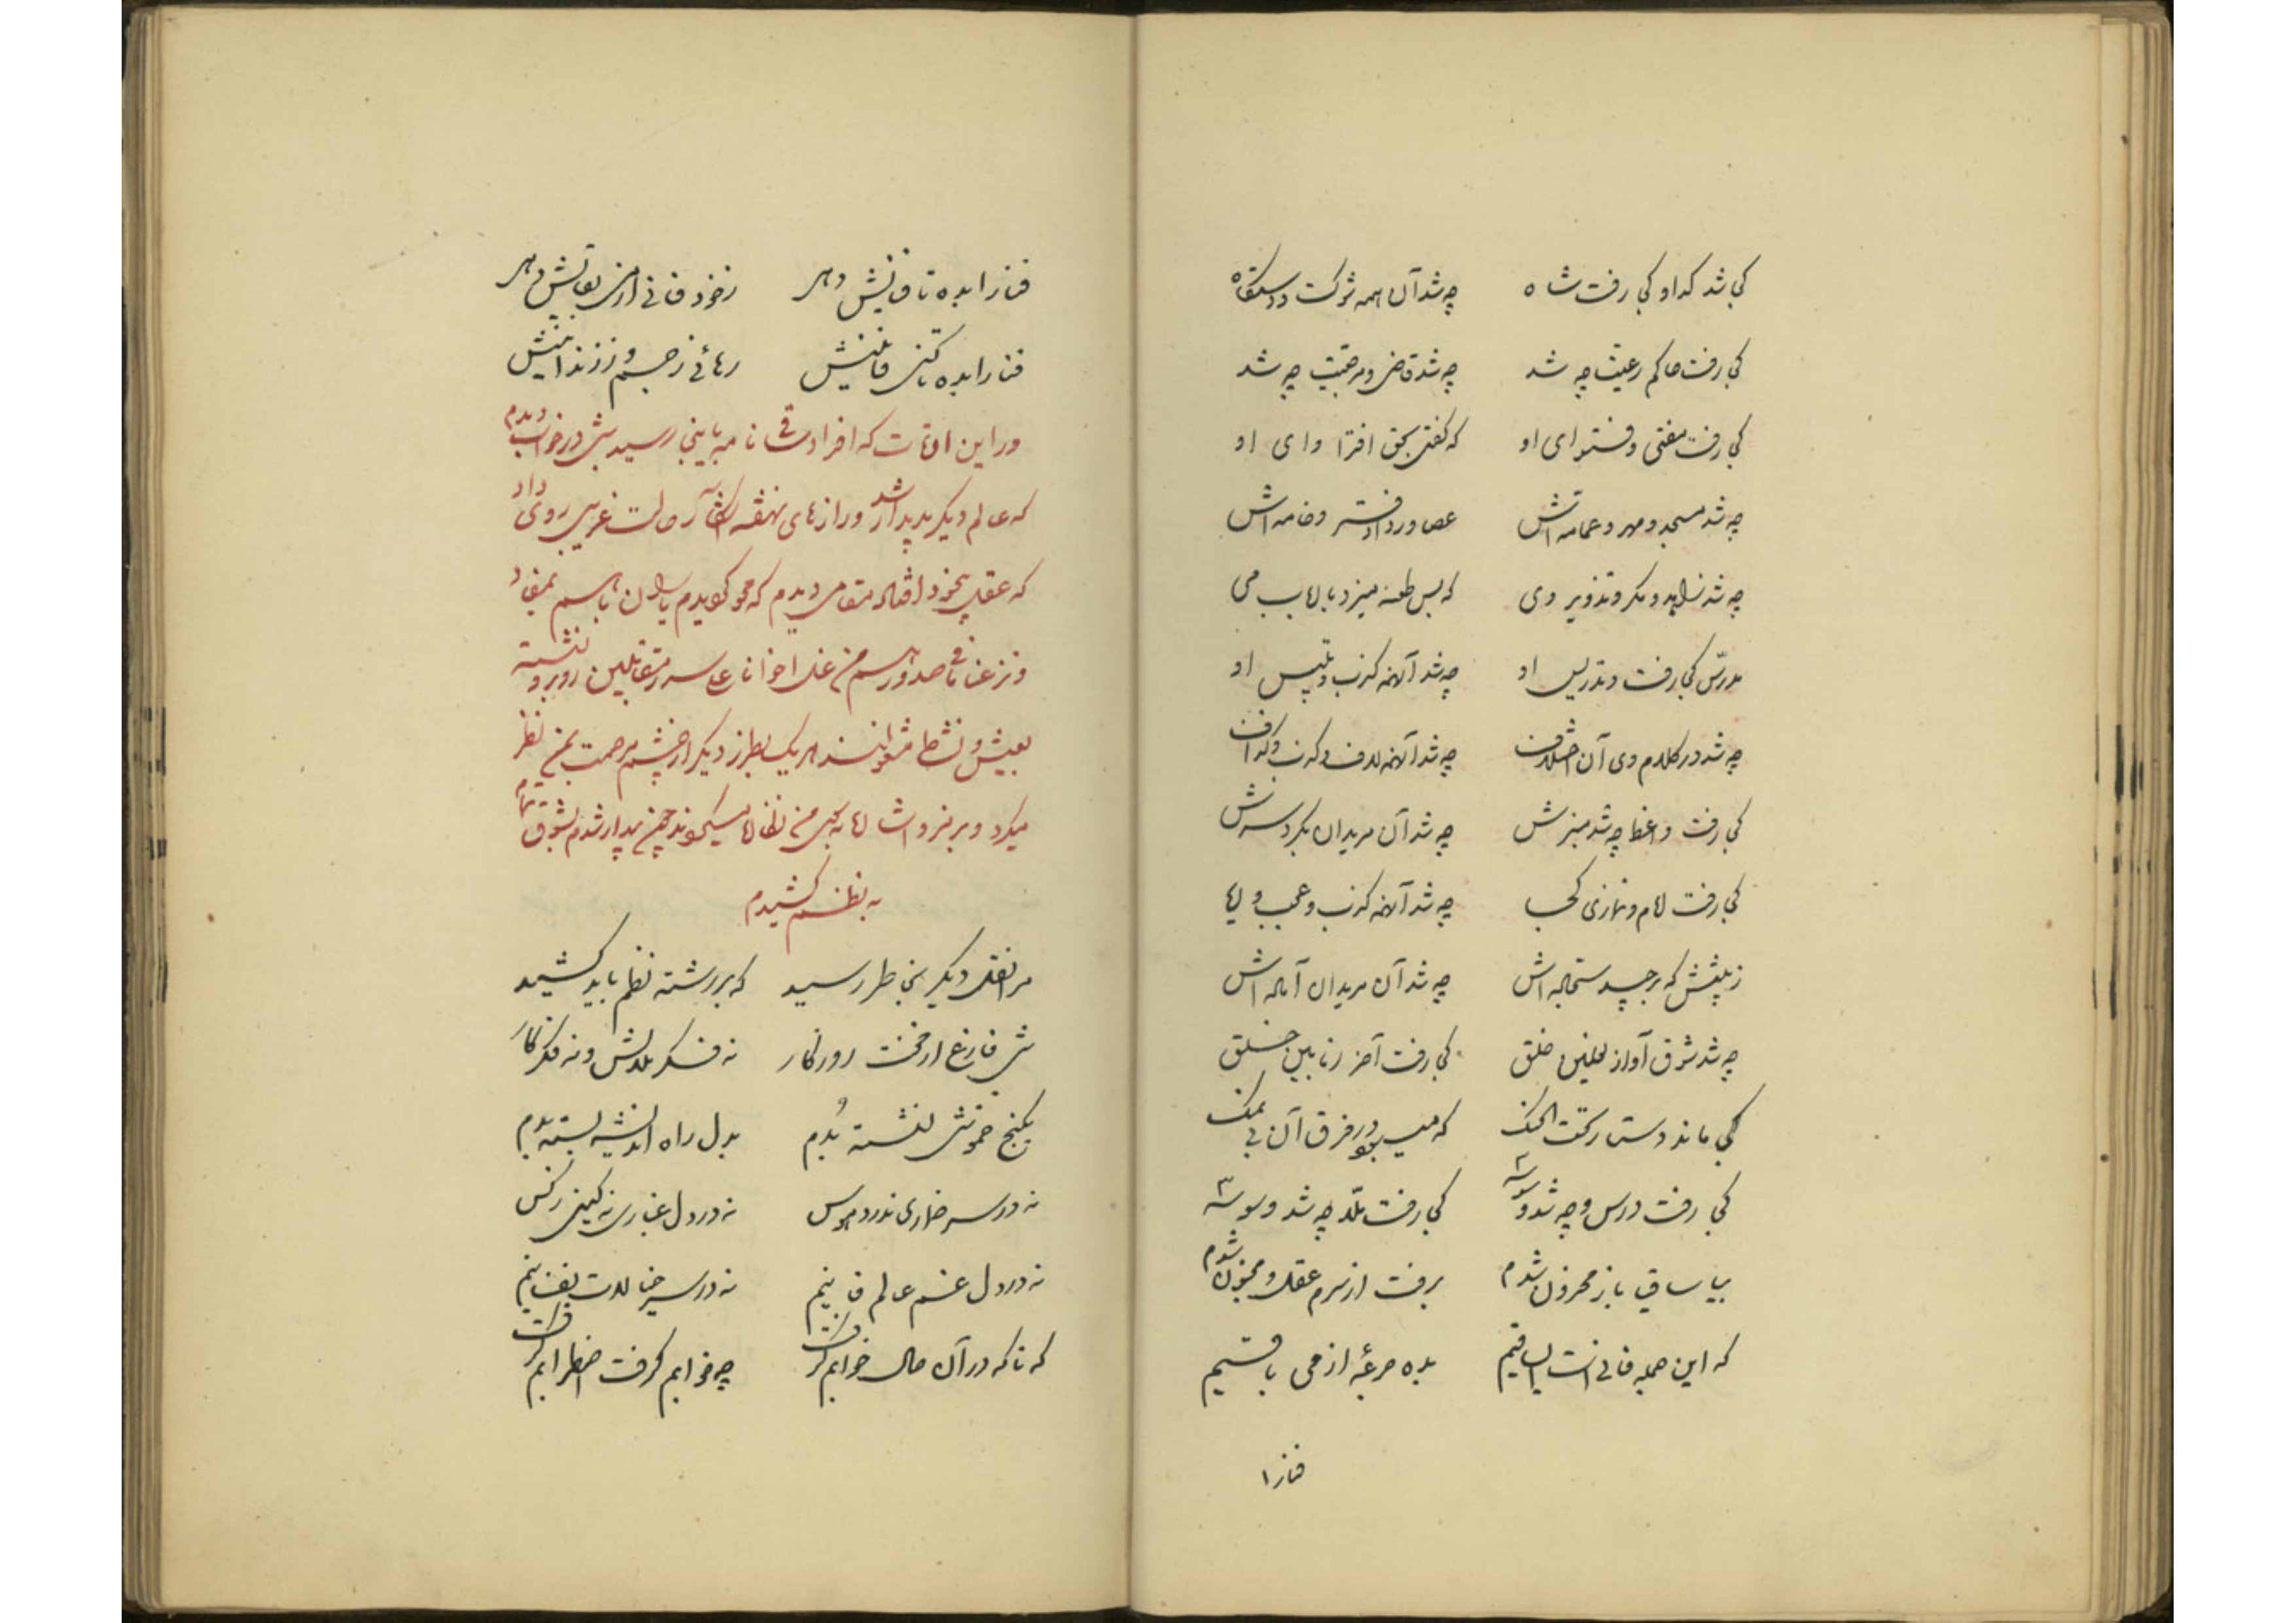 کجا شد گدا و کجا رفت شاه چه شد آن همه شوکت و دستگاه
کجا رفت حاکم رعیت چه شد چه شد قاضی و مرحمت چه شد
کجا رفت مفتی و فتوای او که گفتی بحق افترا وای او
چه شد مسجد و مهر و عمامه اش عصا و ردا دفتر و خامه اش
چه شد زاهد و مکر و تذویر وی که بس طعنه میزد بارباب می
مدرّس کجا رفت و تدریس او چه شد آنهمه کذب و تلبیس او
چه شد در کلام وی آن اختلاف چه شد آنهمه لاف و کذب و گزاف
کجا رفت واعظ چه شد منبرش چه شد آن مریدان بگرد سرش
کجا رفت امام و نمازی کجا چه شد آنهمه کذب و عجب و ریا
چه شد آن مریدان
چه شد شرق آواز نعلین خلق کجا رفت آخر
کجا ماند دستار تحت الحنک که میبود در فرق آن بی نمک
کجا رفت درس و چه شد کجا رفت ملّا چه شد وسوسه
بیا ساقی باز محزون شدم برفت از سرم عقل و مجنون شدم
که این جمله فانی است ای ساقیم بده جرعهٔ از می باقیم
فنا را
فنا را بده تا فنایش دهر ز خود فانی از من بقایش دهر
فنا را بده تا کنی فانیش رهائی ز جسم و ز زندانیش
در این اوقات که افراد ساقی نامه باینجا رسید شبی در خواب دیدم
که عالم دیگر پدیدار شد و رازهای نهفته آشکار حالت غریبی روی داد
که عقل بیخود افتاد مقامی دیدم که محو گردیدم یاران باسم بمفاد
و نزعنا ما فی صدورهم من غل اخوانا علی سرر متقابلین روبرو نشسته
بعیش و نشاط مشغولند هر یک بطرز دیگر از چشم مرحمت بمن نظر
میکرد و برمز و اشاره چون بیدار شدم بشوق تمام
به نظم کشیدم
مرا نقل دیگر بخاطر رسید که بر رشته نظم باید کشید
شبی فارغ از محنت روزگار نه فکر و نه فکر
بکنج خموشی نشسته بُدم بدل راه اندیشه بسته بدم
نه در سر خماری نه درد هوس نه در دل غباری نه کینی ز کس
نه در دل غم عالم فانیم نه در سر خیالات نفسانیم
که ناگه در آن حال خوابم گرفت چه خوابم گرفت اضطرابم گرفت